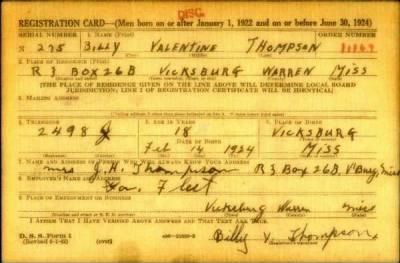 DISC.
REGISTRATION CARD—(Men born on or after January 1, 1922 and on or before June 30, 1924)
SERIAL NUMBER 1. NAME (Print) ORDER NUMBER
N 275 BILLY VALENTINE THOMPSON
2. PLACE OF RESIDENCE (Print)
R 3 BOX 26B VICKSBURG WARREN MISS
[THE PLACE OF RESIDENCE GIVEN ON THE LINE ABOVE WILL DETERMINE LOCAL BOARD
JURISDICTION; LINE 2 OF REGISTRATION CERTIFICATE WILL BE IDENTICAL]
3. MAILING ADDRESS
4. TELEPHONE 5. AGE IN YEARS 6. PLACE OF BIRTH
2498 J 18 VICKSBURG
DATE OF BIRTH
Feb 14 1924 MISS
7. NAME AND ADDRESS OF PERSON WHO WILL ALWAYS KNOW YOUR ADDRESS
Mrs J. H. Thompson R 3 Box 26B, V'Burg, Miss
8. EMPLOYER'S NAME AND ADDRESS
9. PLACE OF EMPLOYMENT OR BUSINESS
Vicksburg Warren Miss
I AFFIRM THAT I HAVE VERIFIED ABOVE ANSWERS AND THAT THEY ARE TRUE.
D. S. S. Form 1
(over)
Billy V. Thompson